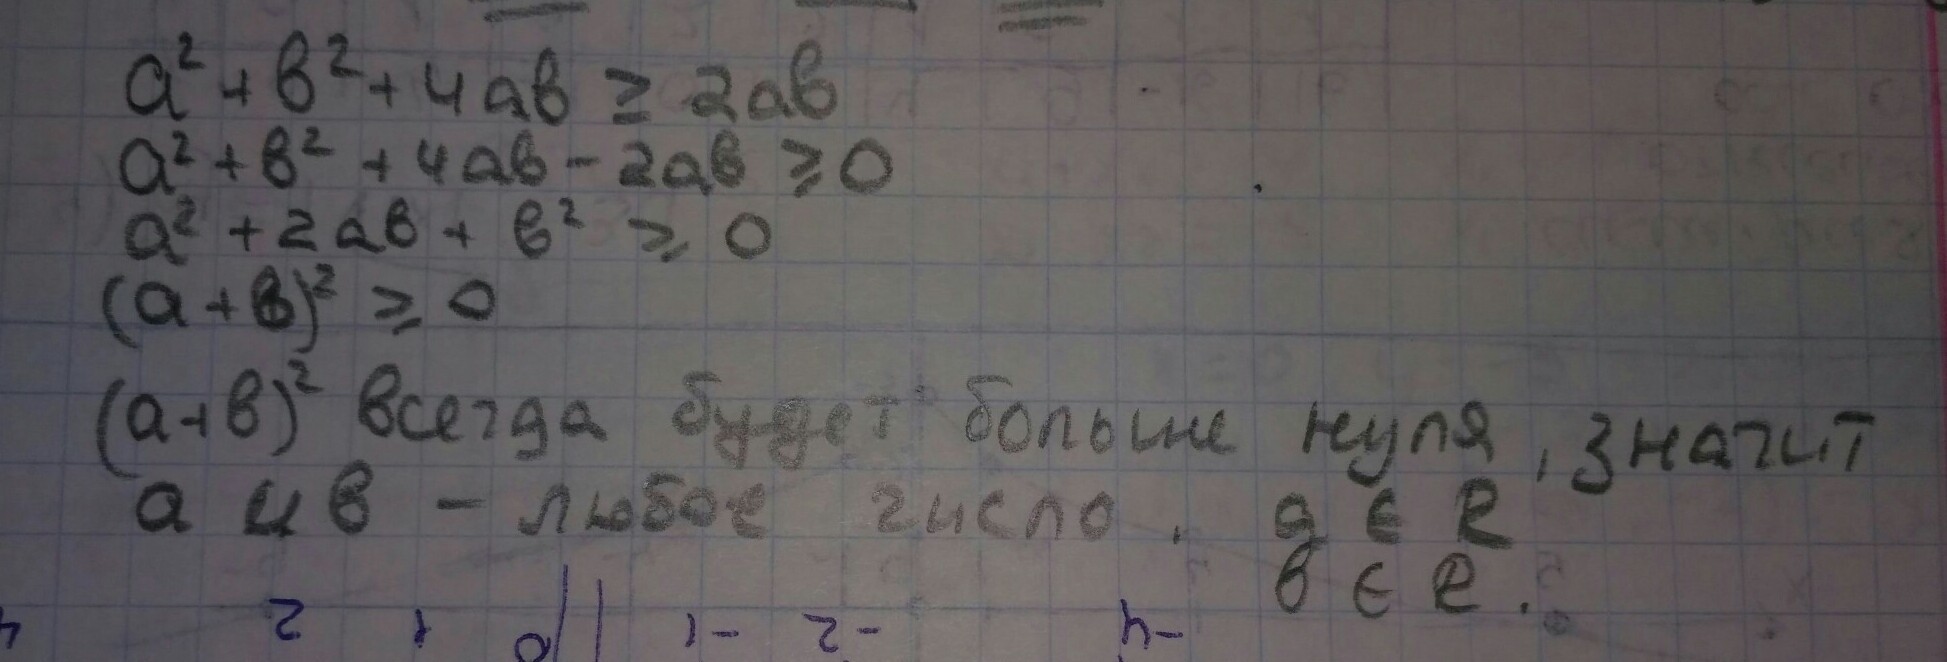 a² + в² + 4ав ≥ 2ав
a² + в² + 4ав - 2ав ≥ 0
a² + 2ав + в² ≥ 0
(a + в)² ≥ 0
(a + в)² всегда будет больше нуля, значит
а и в - любое число. a ∈ R
в ∈ R.
4 2 1 0 -1 -2 -4